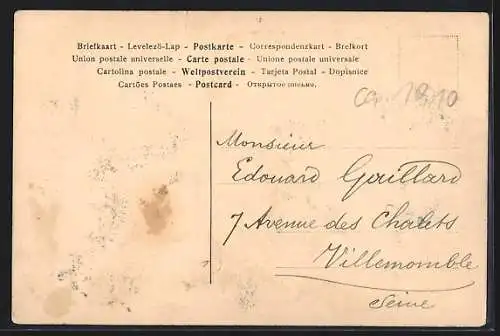 Briefkaart - Levelező-Lap - Postkarte - Correspondenzkart - Brefkort
Union postale universelle - Carte postale - Unione postale universale
Cartolina postale - Weltpostverein - Tarjeta Postal - Dopisnice
Cartões Postaes - Postcard - Открытое письмо.
1910
Monsieur
Edouard Gaillard
7 Avenue des Chalets
Villemomble
Seine